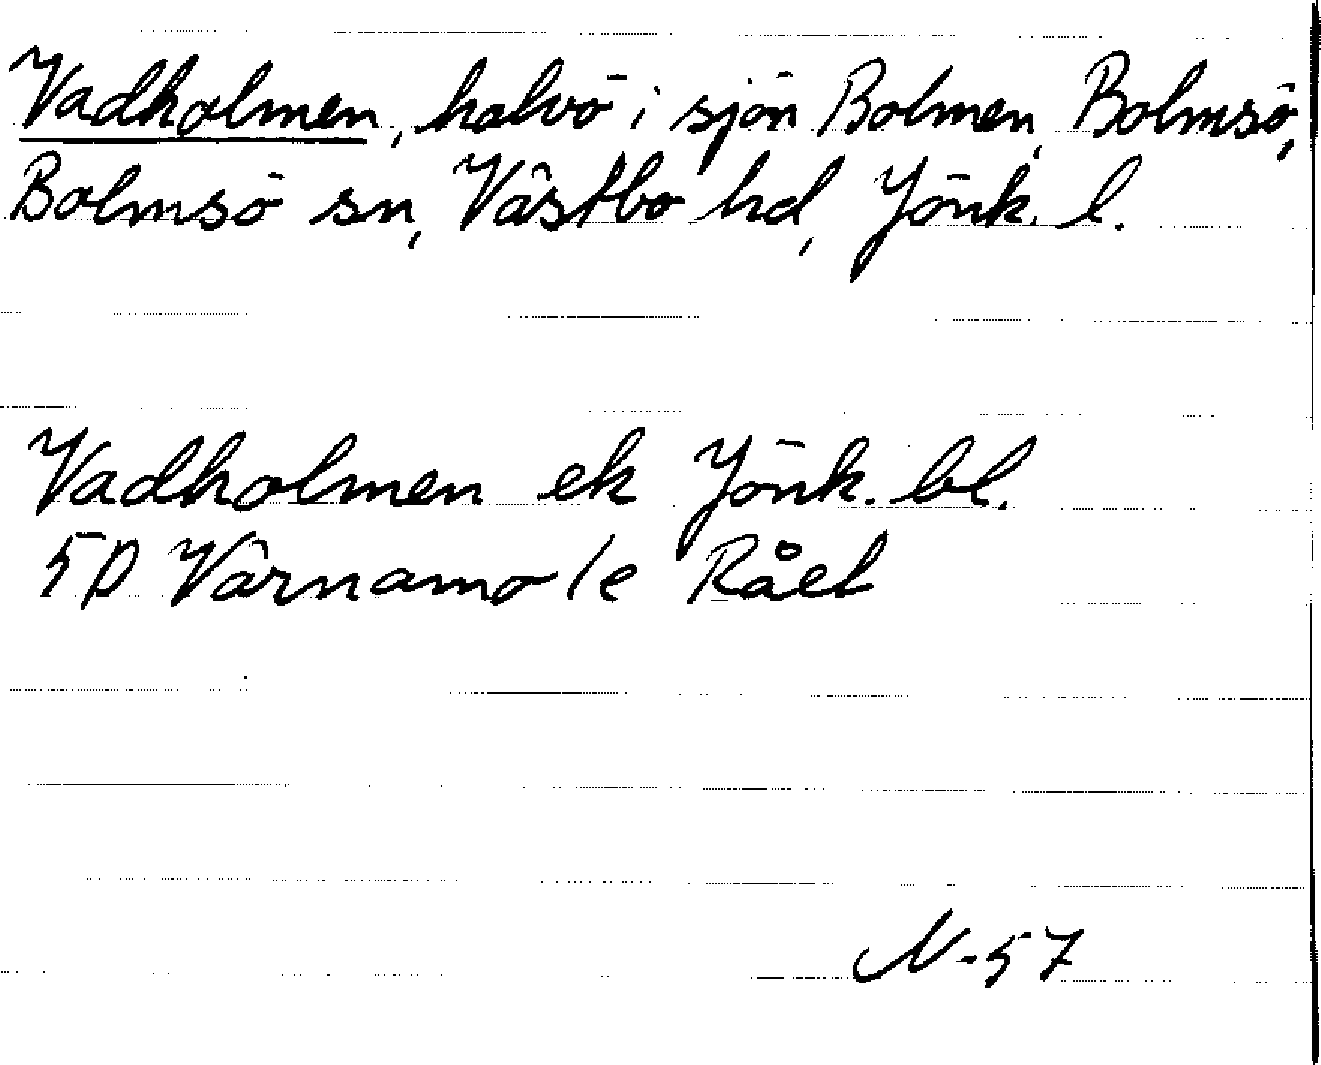 Vadholmen, halvö i sjön Bolmen, Bolmsö,
Bolmsö sn, Västbo hd, Jönk. l.
Vadholmen ek Jönk. bl.
5D Värnamo le Rååt
N-57